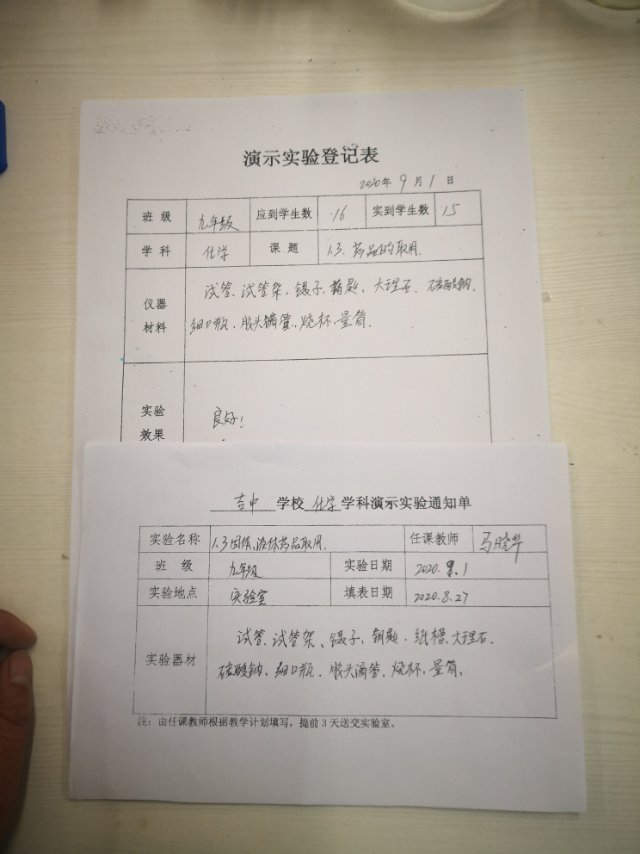 演示实验登记表
2020年 9月 1日
班级 九年级 应到学生数 16 实到学生数 15
学科 化学 课题 1.3. 药品的取用.
仪器材料 试管、试管架、镊子、药匙、大理石、碳酸钠、
细口瓶、胶头滴管、烧杯、量筒.
实验效果 良好!
吉中 学校 化学 学科演示实验通知单
实验名称 1.3固体、液体药品取用. 任课教师 马晓华
班级 九年级 实验日期 2020.9.1
实验地点 实验室 填表日期 2020.8.27
实验器材 试管、试管架、镊子、药匙、纸槽、大理石、
碳酸钠、细口瓶、胶头滴管、烧杯、量筒.
注：由任课教师根据教学计划填写，提前3天送交实验室。